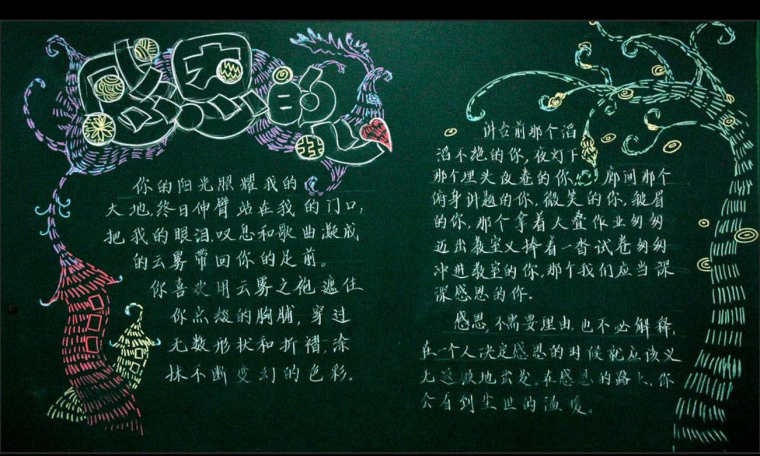 感恩
你的阳光照耀我的
大地,终日伸臂站在我的门口,
把我的眼泪,叹息和歌曲凝成
的云雾带回你的足前。
你喜欢用云雾之袍遮住
你点缀的胸脯,穿过
无数形状和折褶,涂
抹不断变幻的色彩。
讲台前那个滔
滔不绝的你,夜灯下
那个埋头夜卷的你,廊间那个
俯身讲题的你,微笑的你,皱眉
的你,那个拿着一大叠作业匆匆
迈出教室又捧着一沓试卷匆匆
冲进教室的你,那个我们应当深
深感恩的你。
感恩,不需要理由,也不必解释,
在一个人决定感恩的时候就应该义
无返顾地出发,在感恩的路上,你
会看到尘世的温度。